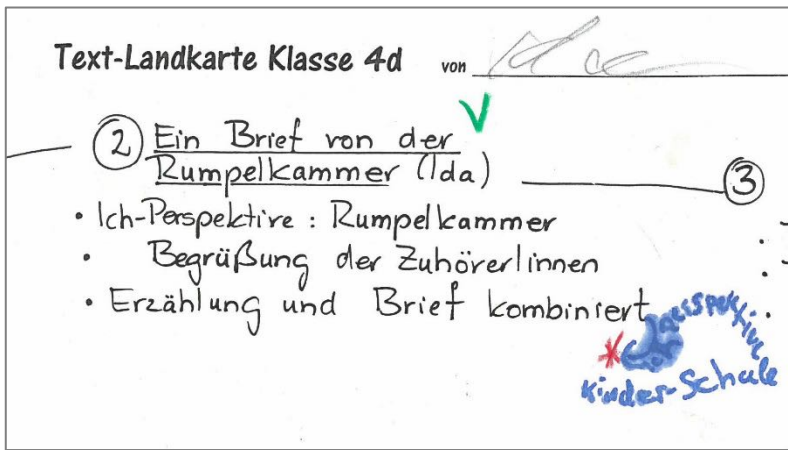 Text-Landkarte Klasse 4d von
2 Ein Brief von der
Rumpelkammer (Ida)
3
• Ich-Perspektive : Rumpelkammer
• Begrüßung der ZuhörerInnen
• Erzählung und Brief kombiniert
Kinder-Schule